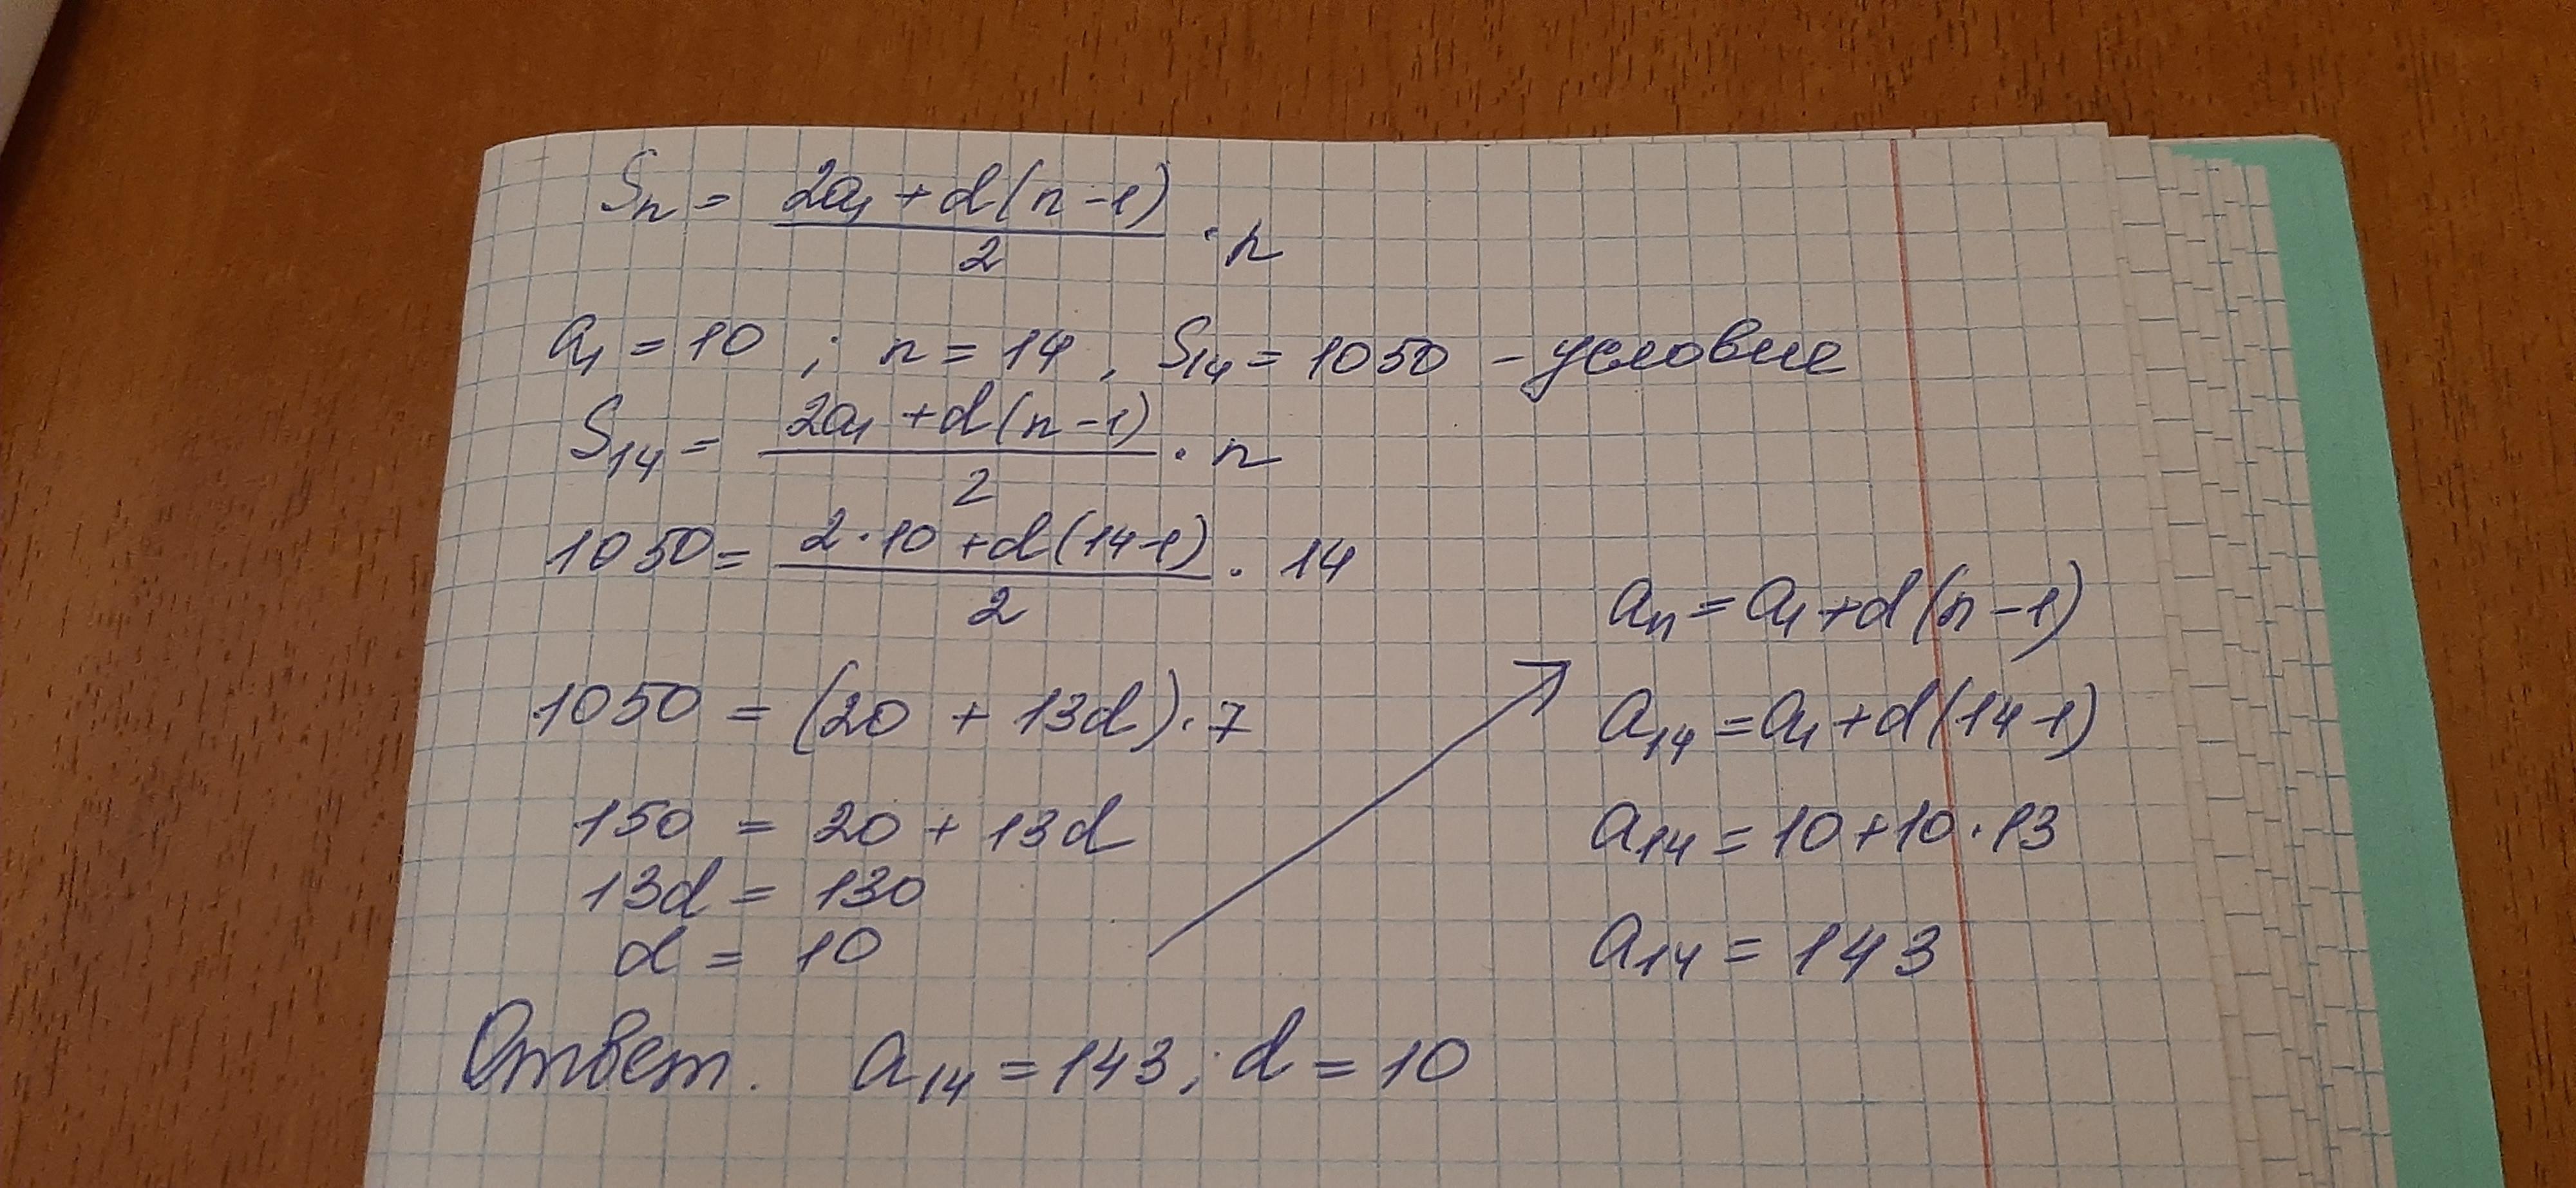 Sn = (2a₁ + d(n-1))/2 · n
a₁ = 10 ; n = 14, S₁₄ = 1050 - условие
S₁₄ = (2a₁ + d(n-1))/2 · n
1050 = (2·10 + d(14-1))/2 · 14
1050 = (20 + 13d)·7
150 = 20 + 13d
13d = 130
d = 10
an = a₁ + d(n-1)
a₁₄ = a₁ + d(14-1)
a₁₄ = 10+10·13
a₁₄ = 143
Ответ. a₁₄ = 143; d = 10